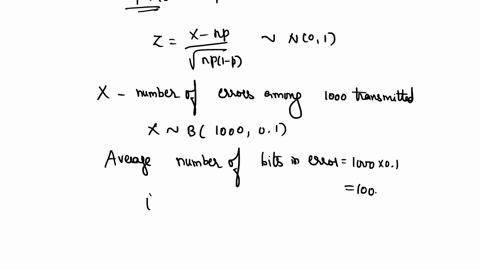 Z = X - np / √np(1-p) ~ N(0,1)
X - number of errors among 1000 transmitted
X ~ B( 1000, 0.1)
Average number of bits in error = 1000 x 0.1
= 100.
i